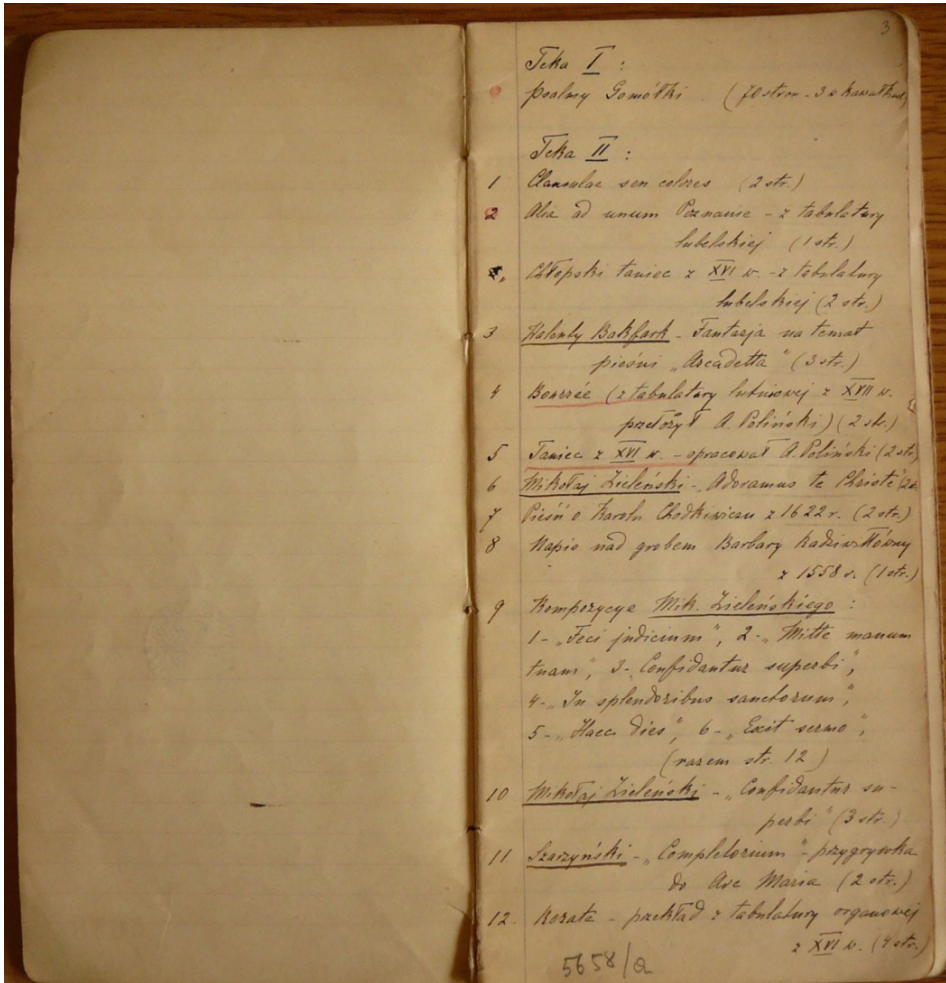 3
Teka I :
psalmy Gomółki (70 stron - 3 w kawałkach)
Teka II :
1 Clausulae seu colores (2 str.)
2 Alia ad unum Poznanie - z tabulatury
lubelskiej (1 str.)
Chłopski taniec z XVI w. - z tabulatury
lubelskiej (2 str.)
3 Walenty Bakfark - Fantazja na temat
pieśni „Arcadetta" (3 str.)
4 Bourrée (z tabulatury lutniowej z XVII w.
przełożył A. Poliński) (2 str.)
5 Taniec z XVI w. - opracował A. Poliński (2 str)
6 Mikołaj Zieleński - „Adoramus te Christe"
7 Pieśń o Karolu Chodkiewiczu z 1622 r. (2 str.)
8 Napis nad grobem Barbary Radziwiłłówny
z 1558 r. (1 str.)
9 Kompozycye Mik. Zieleńskiego :
1 - „Feci judicium", 2 - „Mitte manum
tuam", 3 - „Confidantur superbi",
4 - „In splendoribus sanctorum",
5 - „Haec dies", 6 - „Exit sermo",
(razem str. 12)
10 Mikołaj Zieleński - „Confidantur su-
perbi" (3 str.)
11 Szarzyński - „Completorium" - przygrywka
do Ave Maria (2 str.)
12. Rorate - przekład z tabulatury organowej
z XVI w. (4 str.)
5658/a